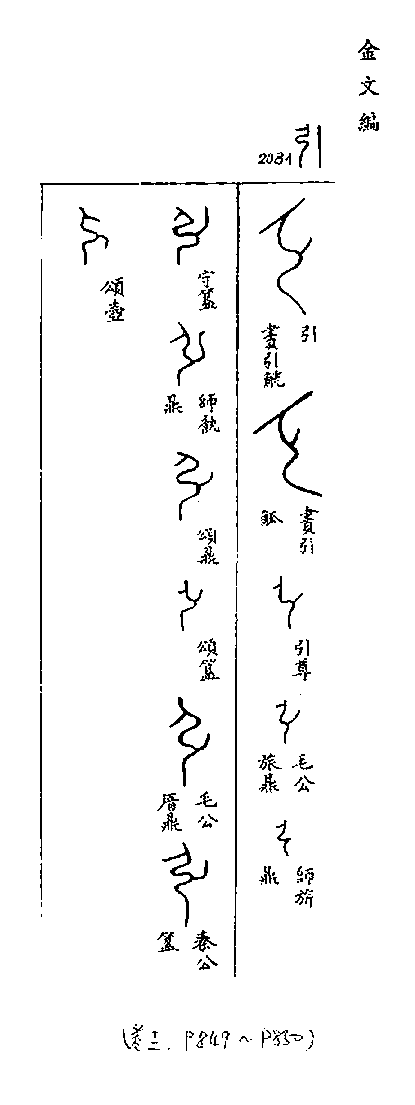 金文編
2081 引
引
書引觥
書引
觚
引尊
毛公
旅鼎
師旂
鼎
守簋
師𩛥
鼎
頌鼎
頌簋
毛公
厝鼎
秦公
簋
頌壺
P849～P850)